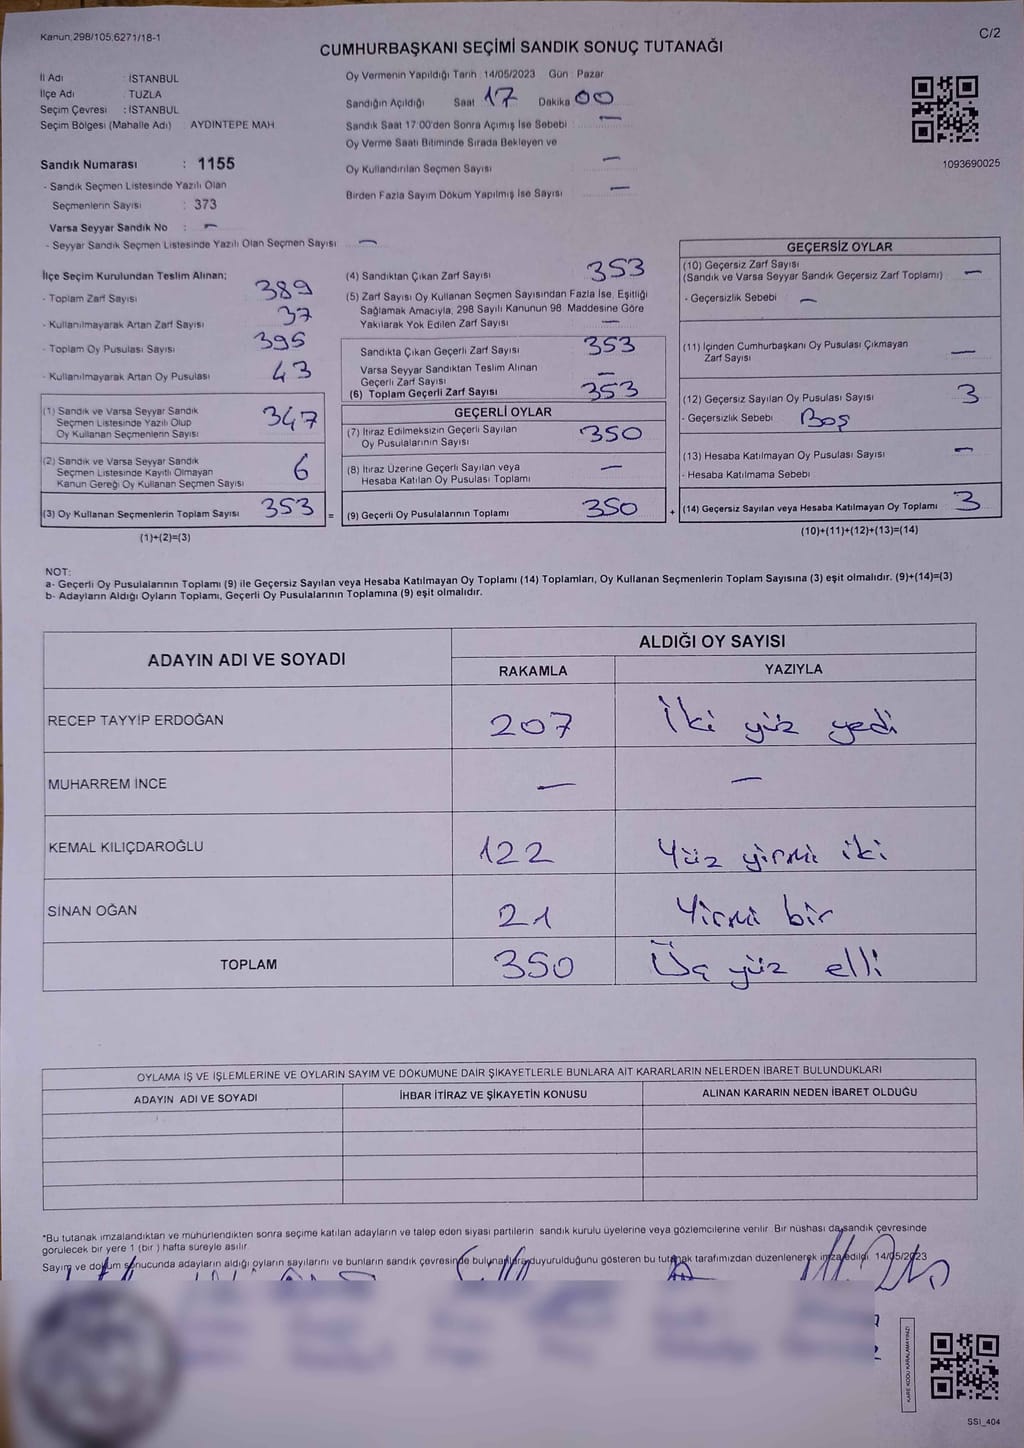 Kanun.298/105,6271/18-1
C/2
CUMHURBAŞKANI SEÇİMİ SANDIK SONUÇ TUTANAĞI
İl Adı : İSTANBUL
İlçe Adı : TUZLA
Seçim Çevresi : İSTANBUL
Seçim Bölgesi (Mahalle Adı) : AYDINTEPE MAH.
Oy Vermenin Yapıldığı Tarih : 14/05/2023 Gün : Pazar
Sandığın Açıldığı Saat 17 Dakika 00
Sandık Saat 17:00'den Sonra Açılmış İse Sebebi : —
Oy Verme Saati Bitiminde Sırada Bekleyen ve
Oy Kullandırılan Seçmen Sayısı —
Birden Fazla Sayım Döküm Yapılmış İse Sayısı —
1093690025
Sandık Numarası : 1155
- Sandık Seçmen Listesinde Yazılı Olan
Seçmenlerin Sayısı : 373
Varsa Seyyar Sandık No : —
- Seyyar Sandık Seçmen Listesinde Yazılı Olan Seçmen Sayısı —
İlçe Seçim Kurulundan Teslim Alınan;
- Toplam Zarf Sayısı 389
- Kullanılmayarak Artan Zarf Sayısı 37
- Toplam Oy Pusulası Sayısı 395
- Kullanılmayarak Artan Oy Pusulası 43
(1) Sandık ve Varsa Seyyar Sandık
Seçmen Listesinde Yazılı Olup
Oy Kullanan Seçmenlerin Sayısı 347
(2) Sandık ve Varsa Seyyar Sandık
Seçmen Listesinde Kayıtlı Olmayan
Kanun Gereği Oy Kullanan Seçmen Sayısı 6
(3) Oy Kullanan Seçmenlerin Toplam Sayısı 353 =
(1)+(2)=(3)
(4) Sandıktan Çıkan Zarf Sayısı 353
(5) Zarf Sayısı Oy Kullanan Seçmen Sayısından Fazla İse, Eşitliği
Sağlamak Amacıyla, 298 Sayılı Kanunun 98. Maddesine Göre
Yakılarak Yok Edilen Zarf Sayısı —
Sandıkta Çıkan Geçerli Zarf Sayısı 353
Varsa Seyyar Sandıktan Teslim Alınan
Geçerli Zarf Sayısı —
(6) Toplam Geçerli Zarf Sayısı 353
GEÇERLİ OYLAR
(7) İtiraz Edilmeksizin Geçerli Sayılan
Oy Pusulalarının Sayısı 350
(8) İtiraz Üzerine Geçerli Sayılan veya
Hesaba Katılan Oy Pusulası Toplamı —
(9) Geçerli Oy Pusulalarının Toplamı 350 +
GEÇERSİZ OYLAR
(10) Geçersiz Zarf Sayısı
(Sandık ve Varsa Seyyar Sandık Geçersiz Zarf Toplamı) —
- Geçersizlik Sebebi —
(11) İçinden Cumhurbaşkanı Oy Pusulası Çıkmayan
Zarf Sayısı —
(12) Geçersiz Sayılan Oy Pusulası Sayısı 3
- Geçersizlik Sebebi Boş
(13) Hesaba Katılmayan Oy Pusulası Sayısı —
- Hesaba Katılmama Sebebi
(14) Geçersiz Sayılan veya Hesaba Katılmayan Oy Toplamı 3
(10)+(11)+(12)+(13)=(14)
NOT:
a- Geçerli Oy Pusulalarının Toplamı (9) ile Geçersiz Sayılan veya Hesaba Katılmayan Oy Toplamı (14) Toplamları, Oy Kullanan Seçmenlerin Toplam Sayısına (3) eşit olmalıdır. (9)+(14)=(3)
b- Adayların Aldığı Oyların Toplamı, Geçerli Oy Pusulalarının Toplamına (9) eşit olmalıdır.
ADAYIN ADI VE SOYADI
ALDIĞI OY SAYISI
RAKAMLA YAZIYLA
RECEP TAYYİP ERDOĞAN 207 İki yüz yedi
MUHARREM İNCE — —
KEMAL KILIÇDAROĞLU 122 Yüz yirmi iki
SİNAN OĞAN 21 Yirmi bir
TOPLAM 350 Üç yüz elli
OYLAMA İŞ VE İŞLEMLERİNE VE OYLARIN SAYIM VE DÖKÜMÜNE DAİR ŞİKAYETLERLE BUNLARA AİT KARARLARIN NELERDEN İBARET BULUNDUKLARI
ADAYIN ADI VE SOYADI İHBAR İTİRAZ VE ŞİKAYETİN KONUSU ALINAN KARARIN NEDEN İBARET OLDUĞU
*Bu tutanak imzalandıktan ve mühürlendikten sonra seçime katılan adayların ve talep eden siyasi partilerin sandık kurulu üyelerine veya gözlemcilerine verilir. Bir nüshası da sandık çevresinde
görülecek bir yere 1 (bir) hafta süreyle asılır.
Sayım ve döküm sonucunda adayların aldığı oyların sayılarını ve bunların sandık çevresinde bulunanlara duyurulduğunu gösteren bu tutanak tarafımızdan düzenlenerek imza edildi. 14/05/2023
KARE KODU KARALAMAYINIZ!
SSI_404